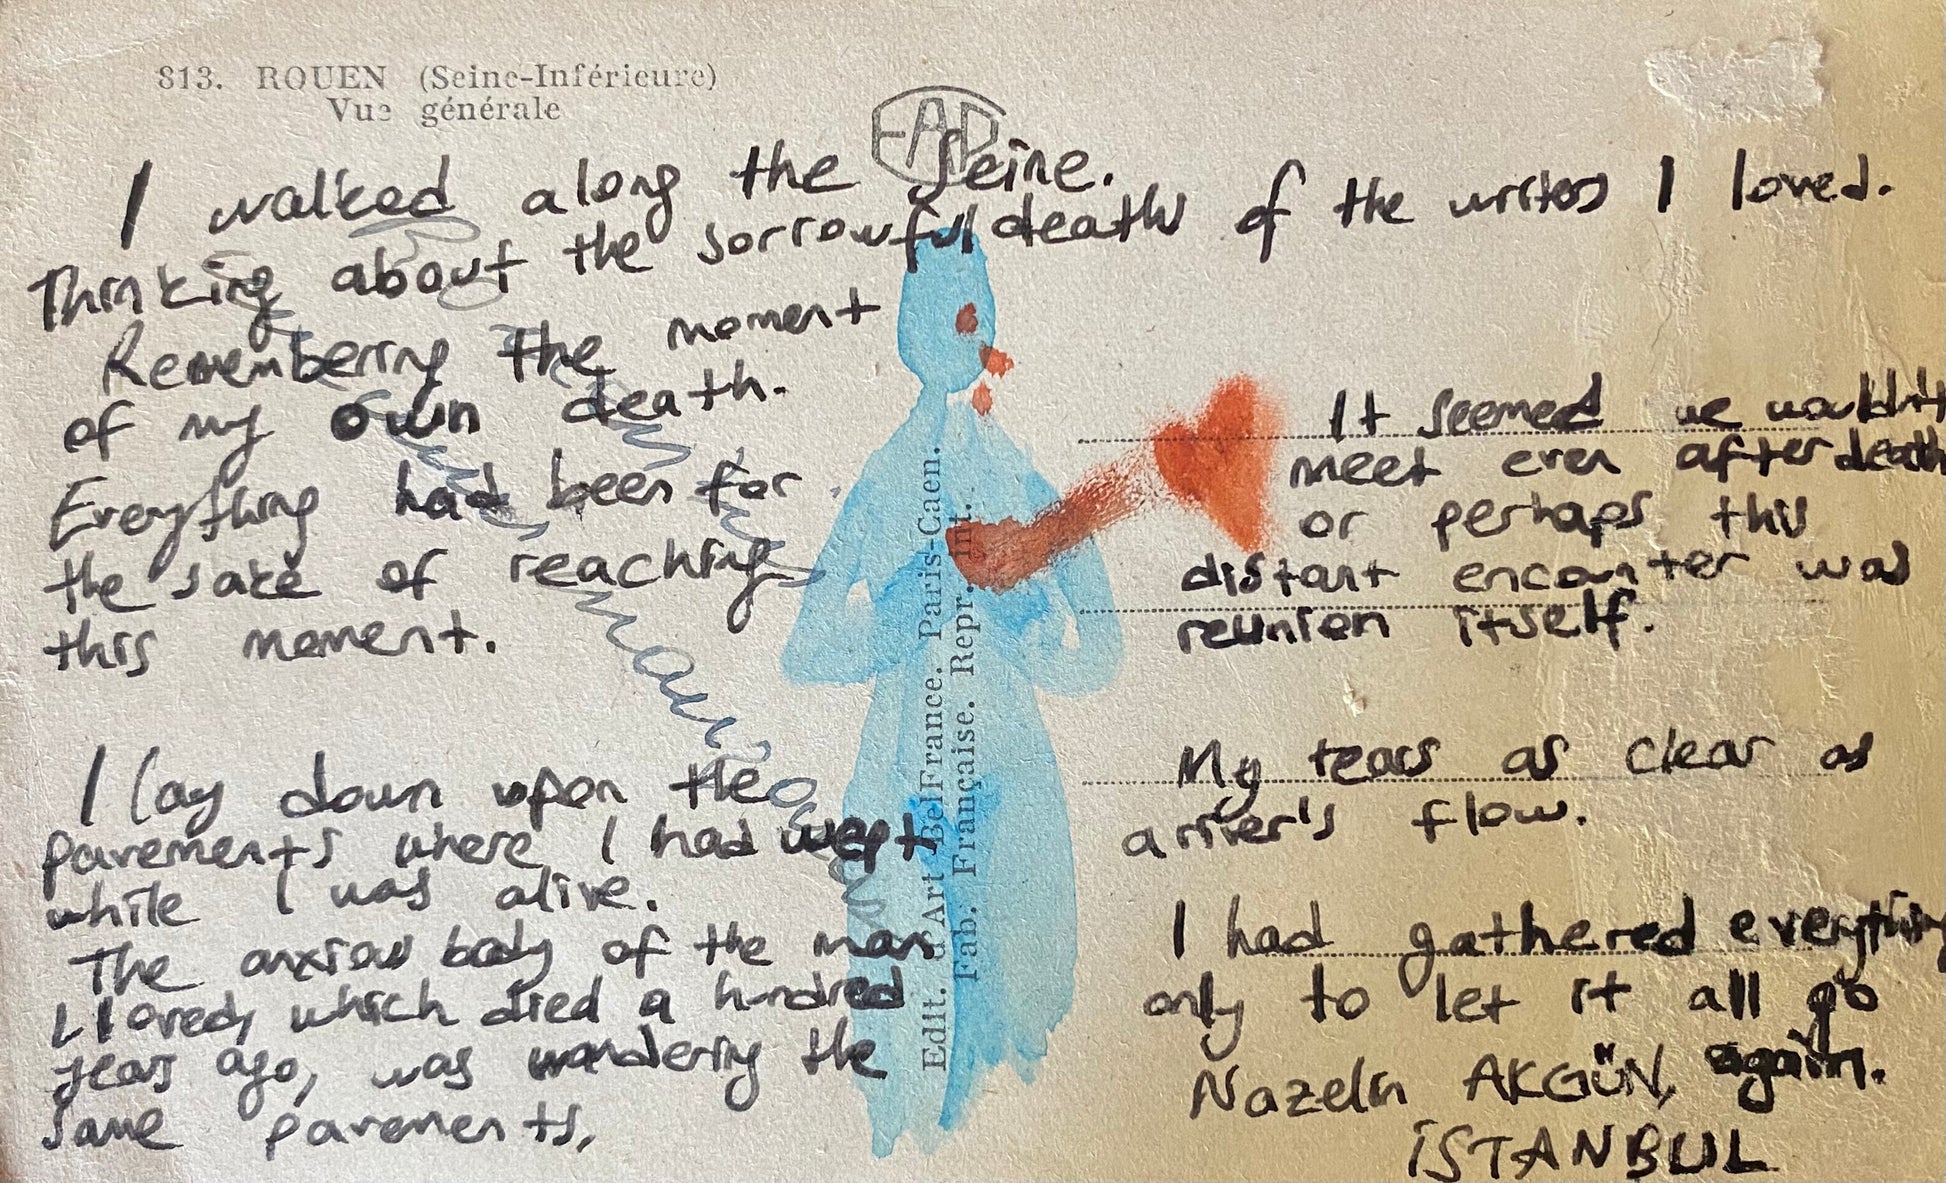 813. ROUEN (Seine-Inférieure)
Vue générale
EAD
I walked along the Seine.
Thinking about the sorrowful deaths of the writers I loved.
Remembering the moment
of my own death.
Everything had been for
the sake of reaching
this moment.
I lay down upon the
pavements where I had wept
while I was alive.
The anxious body of the man
I loved, which died a hundred
years ago, was wandering the
same pavements,
Edit. d'Art BelFrance. Paris-Caen.
Fab. Française. Repr. int.
It seemed we wouldn't
meet even after death
or perhaps this
distant encounter was
reunion itself.
My tears as clear as
a river's flow.
I had gathered everything
only to let it all go
again.
Nazelin AKGÜN,
İSTANBUL